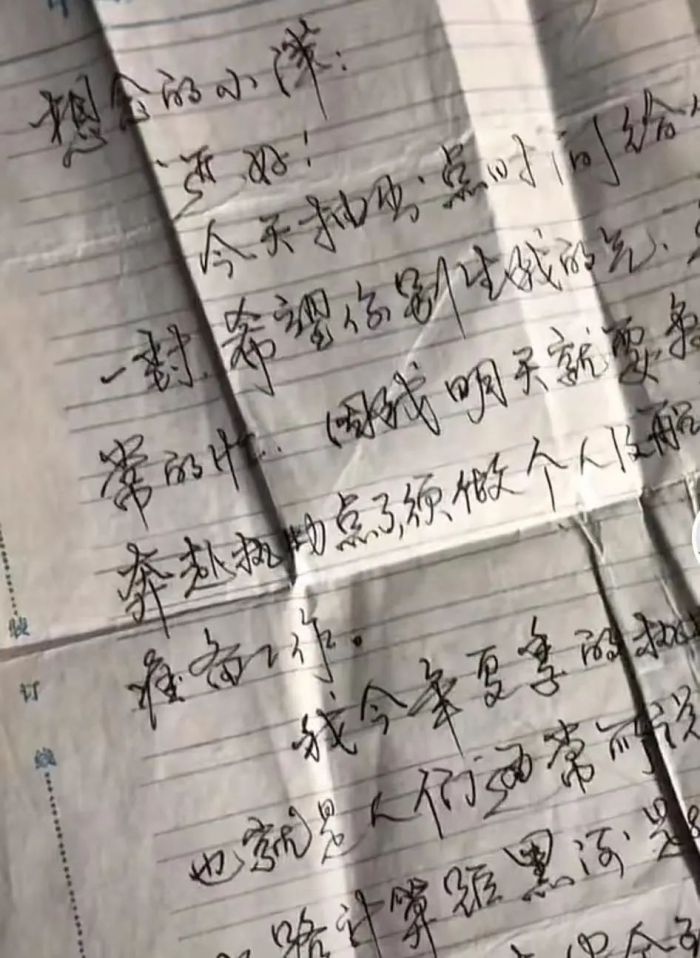 想念的小萍:
还好!
今天抽出点时间给
一封,希望你别生我的气,
常的忙..因我明天就要
奔赴执勤点了,须做个人及船
准备工作。
我今年夏季的执
也就是人们通常所说
路计算距黑河是
装
订
线